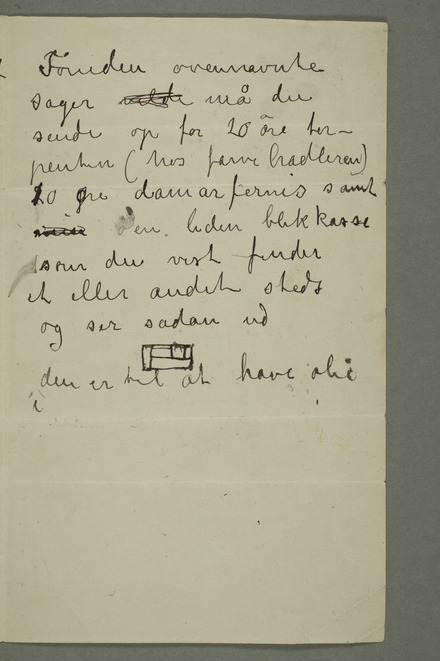 Foruden ovennævnte
sager må du
sende op for 20 øre ter-
pentin (hos farvehandleren)
20 øre damarfernis samt
en liden blikkasse
som du vist finder
et eller andet steds
og ser sådan ud
den er til at have olie
i